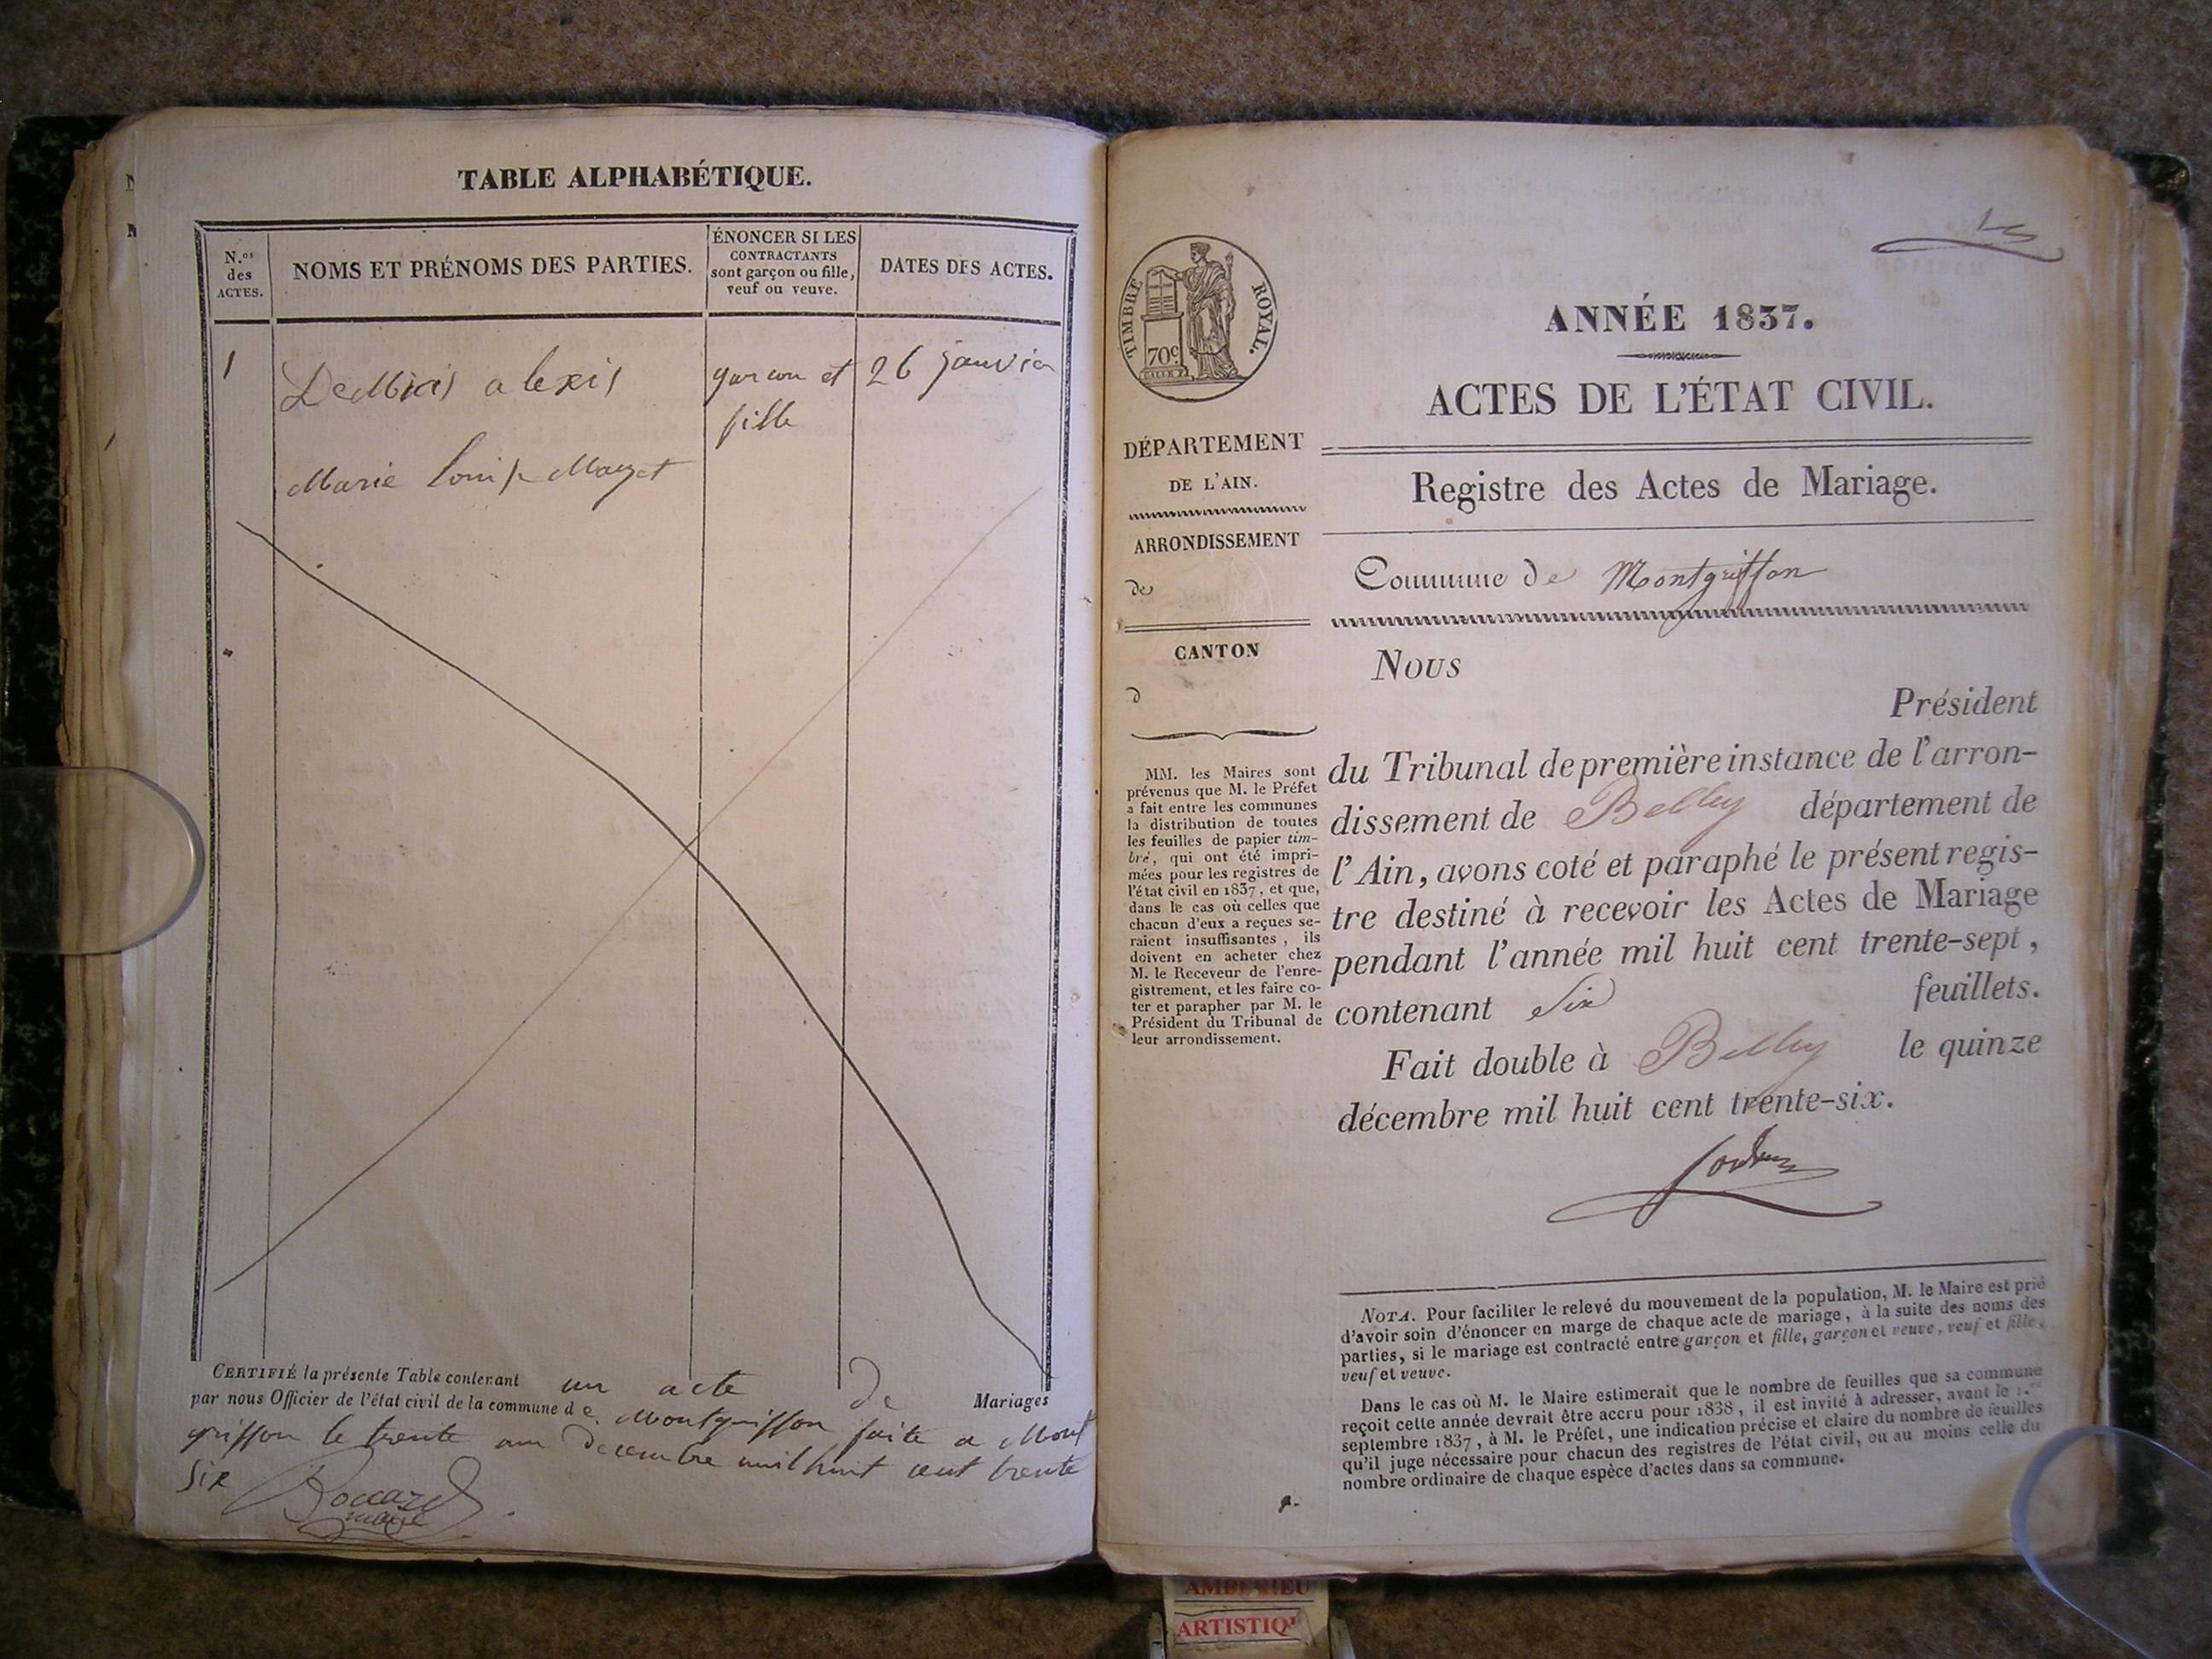 TABLE ALPHABÉTIQUE.
N.os
des
ACTES.
NOMS ET PRÉNOMS DES PARTIES.
ÉNONCER SI LES
CONTRACTANTS
sont garçon ou fille,
veuf ou veuve.
DATES DES ACTES.
1
alexis
garcon et
26 janvier
fille
Marie Louise
CERTIFIÉ la présente Table contenant un acte de Mariages
par nous Officier de l'état civil de la commune de Montgriffon faite a Mont
griffon le trente un decembre mil huit cent trente
six
maire
TIMBRE ROYAL.
70c
ANNÉE 1837.
ACTES DE L'ÉTAT CIVIL.
DÉPARTEMENT
DE L'AIN.
ARRONDISSEMENT
de
CANTON
d
Registre des Actes de Mariage.
Commune de Montgriffon
MM. les Maires sont
prévenus que M. le Préfet
a fait entre les communes
la distribution de toutes
les feuilles de papier tim-
bré, qui ont été impri-
mées pour les registres de
l'état civil en 1837, et que,
dans le cas où celles que
chacun d'eux a reçues se-
raient insuffisantes, ils
doivent en acheter chez
M. le Receveur de l'enre-
gistrement, et les faire co-
ter et parapher par M. le
Président du Tribunal de
leur arrondissement.
Nous
Président
du Tribunal de première instance de l'arron-
dissement de Belley département de
l'Ain, avons coté et paraphé le présent regis-
tre destiné à recevoir les Actes de Mariage
pendant l'année mil huit cent trente-sept,
contenant Six feuillets.
Fait double à Belley le quinze
décembre mil huit cent trente-six.
NOTA. Pour faciliter le relevé du mouvement de la population, M. le Maire est prié
d'avoir soin d'énoncer en marge de chaque acte de mariage, à la suite des noms des
parties, si le mariage est contracté entre garçon et fille, garçon et veuve, veuf et fille,
veuf et veuve.
Dans le cas où M. le Maire estimerait que le nombre de feuilles que sa commune
reçoit cette année devrait être accru pour 1838, il est invité à adresser, avant le 1.er
septembre 1837, à M. le Préfet, une indication précise et claire du nombre de feuilles
qu'il juge nécessaire pour chacun des registres de l'état civil, ou au moins celle du
nombre ordinaire de chaque espèce d'actes dans sa commune.
AMBERIEU
ARTISTIQU